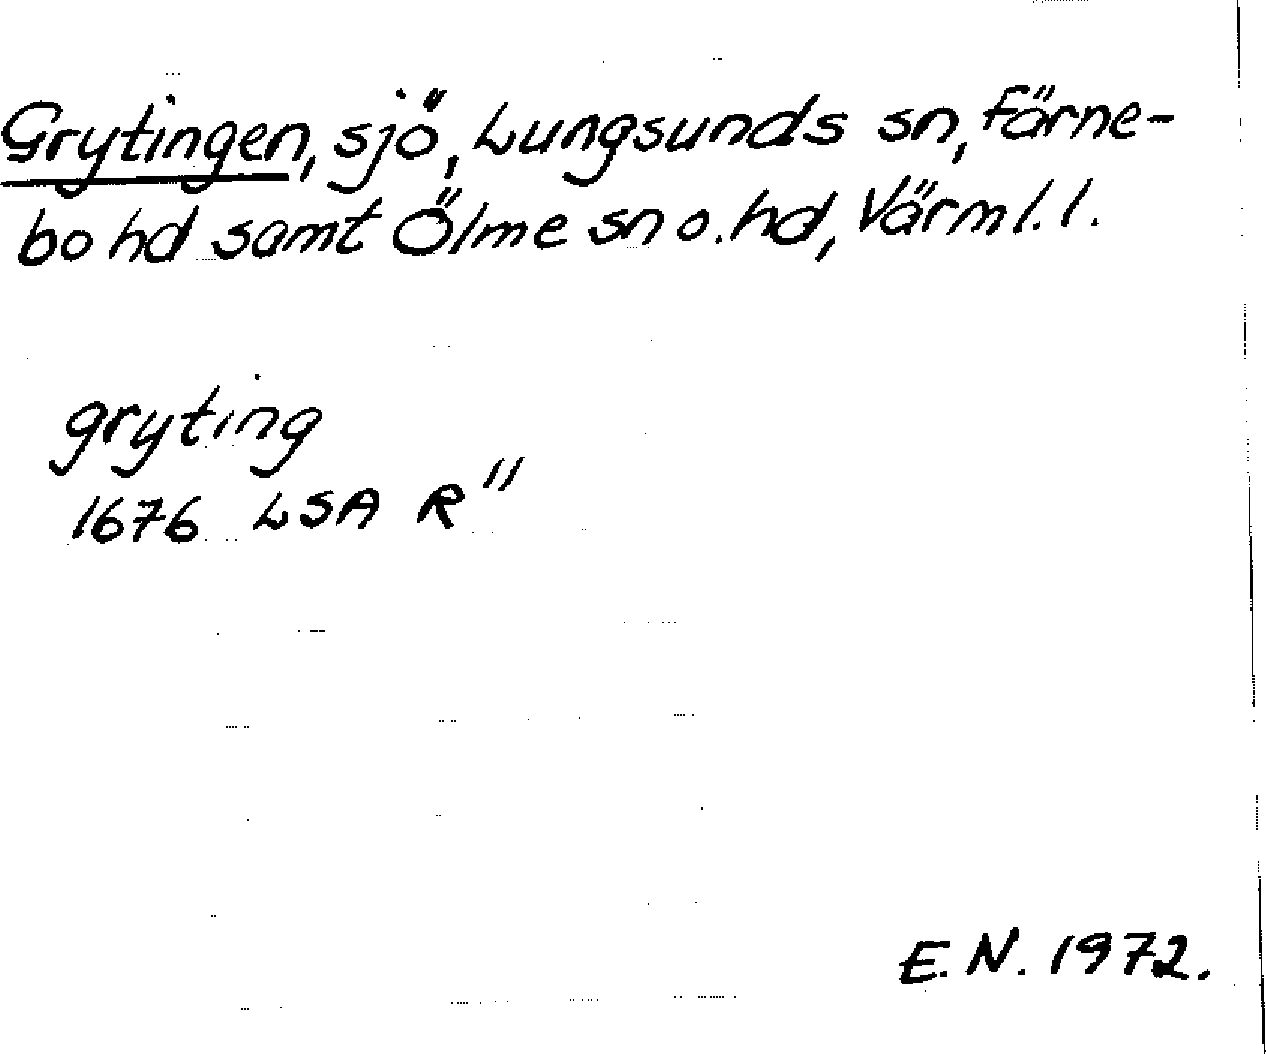 Grytingen, sjö, Lungsunds sn, Färne-
bo hd samt Ölme sn o. hd, Värml. l.
gryting
1676 LSA R"
E. N. 1972.